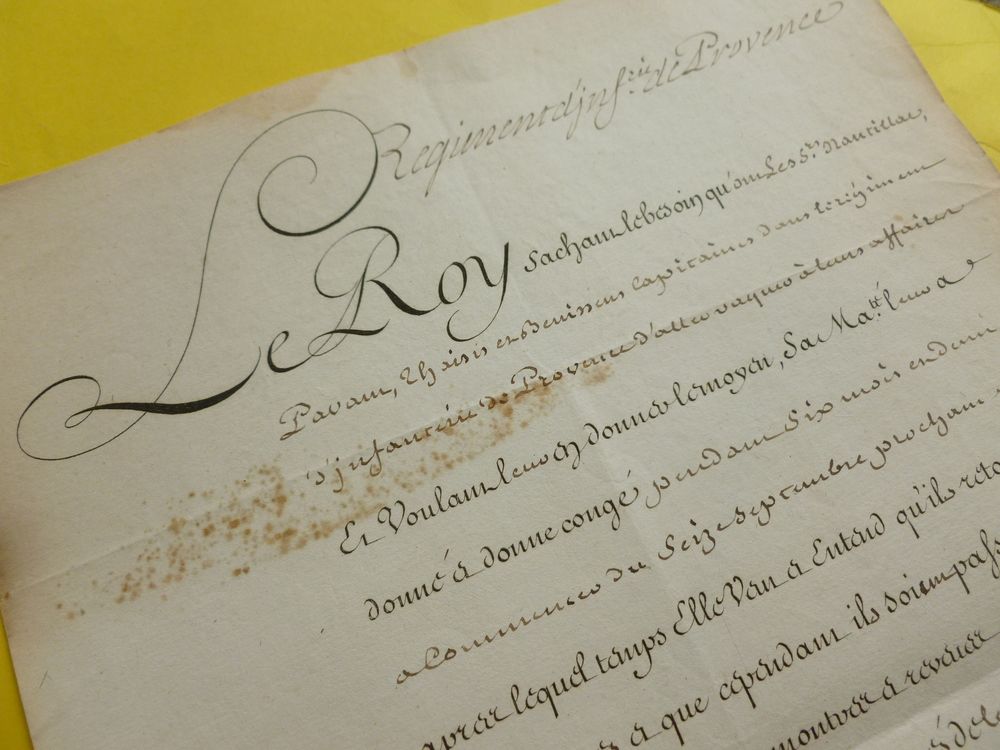 Regiment d'jnf.rie de Provence
Le Roy sachant le besoin qu'ont Les S.rs Nautillac,
Pavant, Thoisis et Capitaines dans le régiment
d'jnfanterie de Provence d'aller vaquer à leurs affaires
Et Voulant leur en donner le moyen, Sa Ma.té leur a
donné et donne congé pendant Six mois
a Commencer du Seize septembre prochain
apres lequel temps Elle Veut et Entend qu'ils
et que cependant ils soient
a